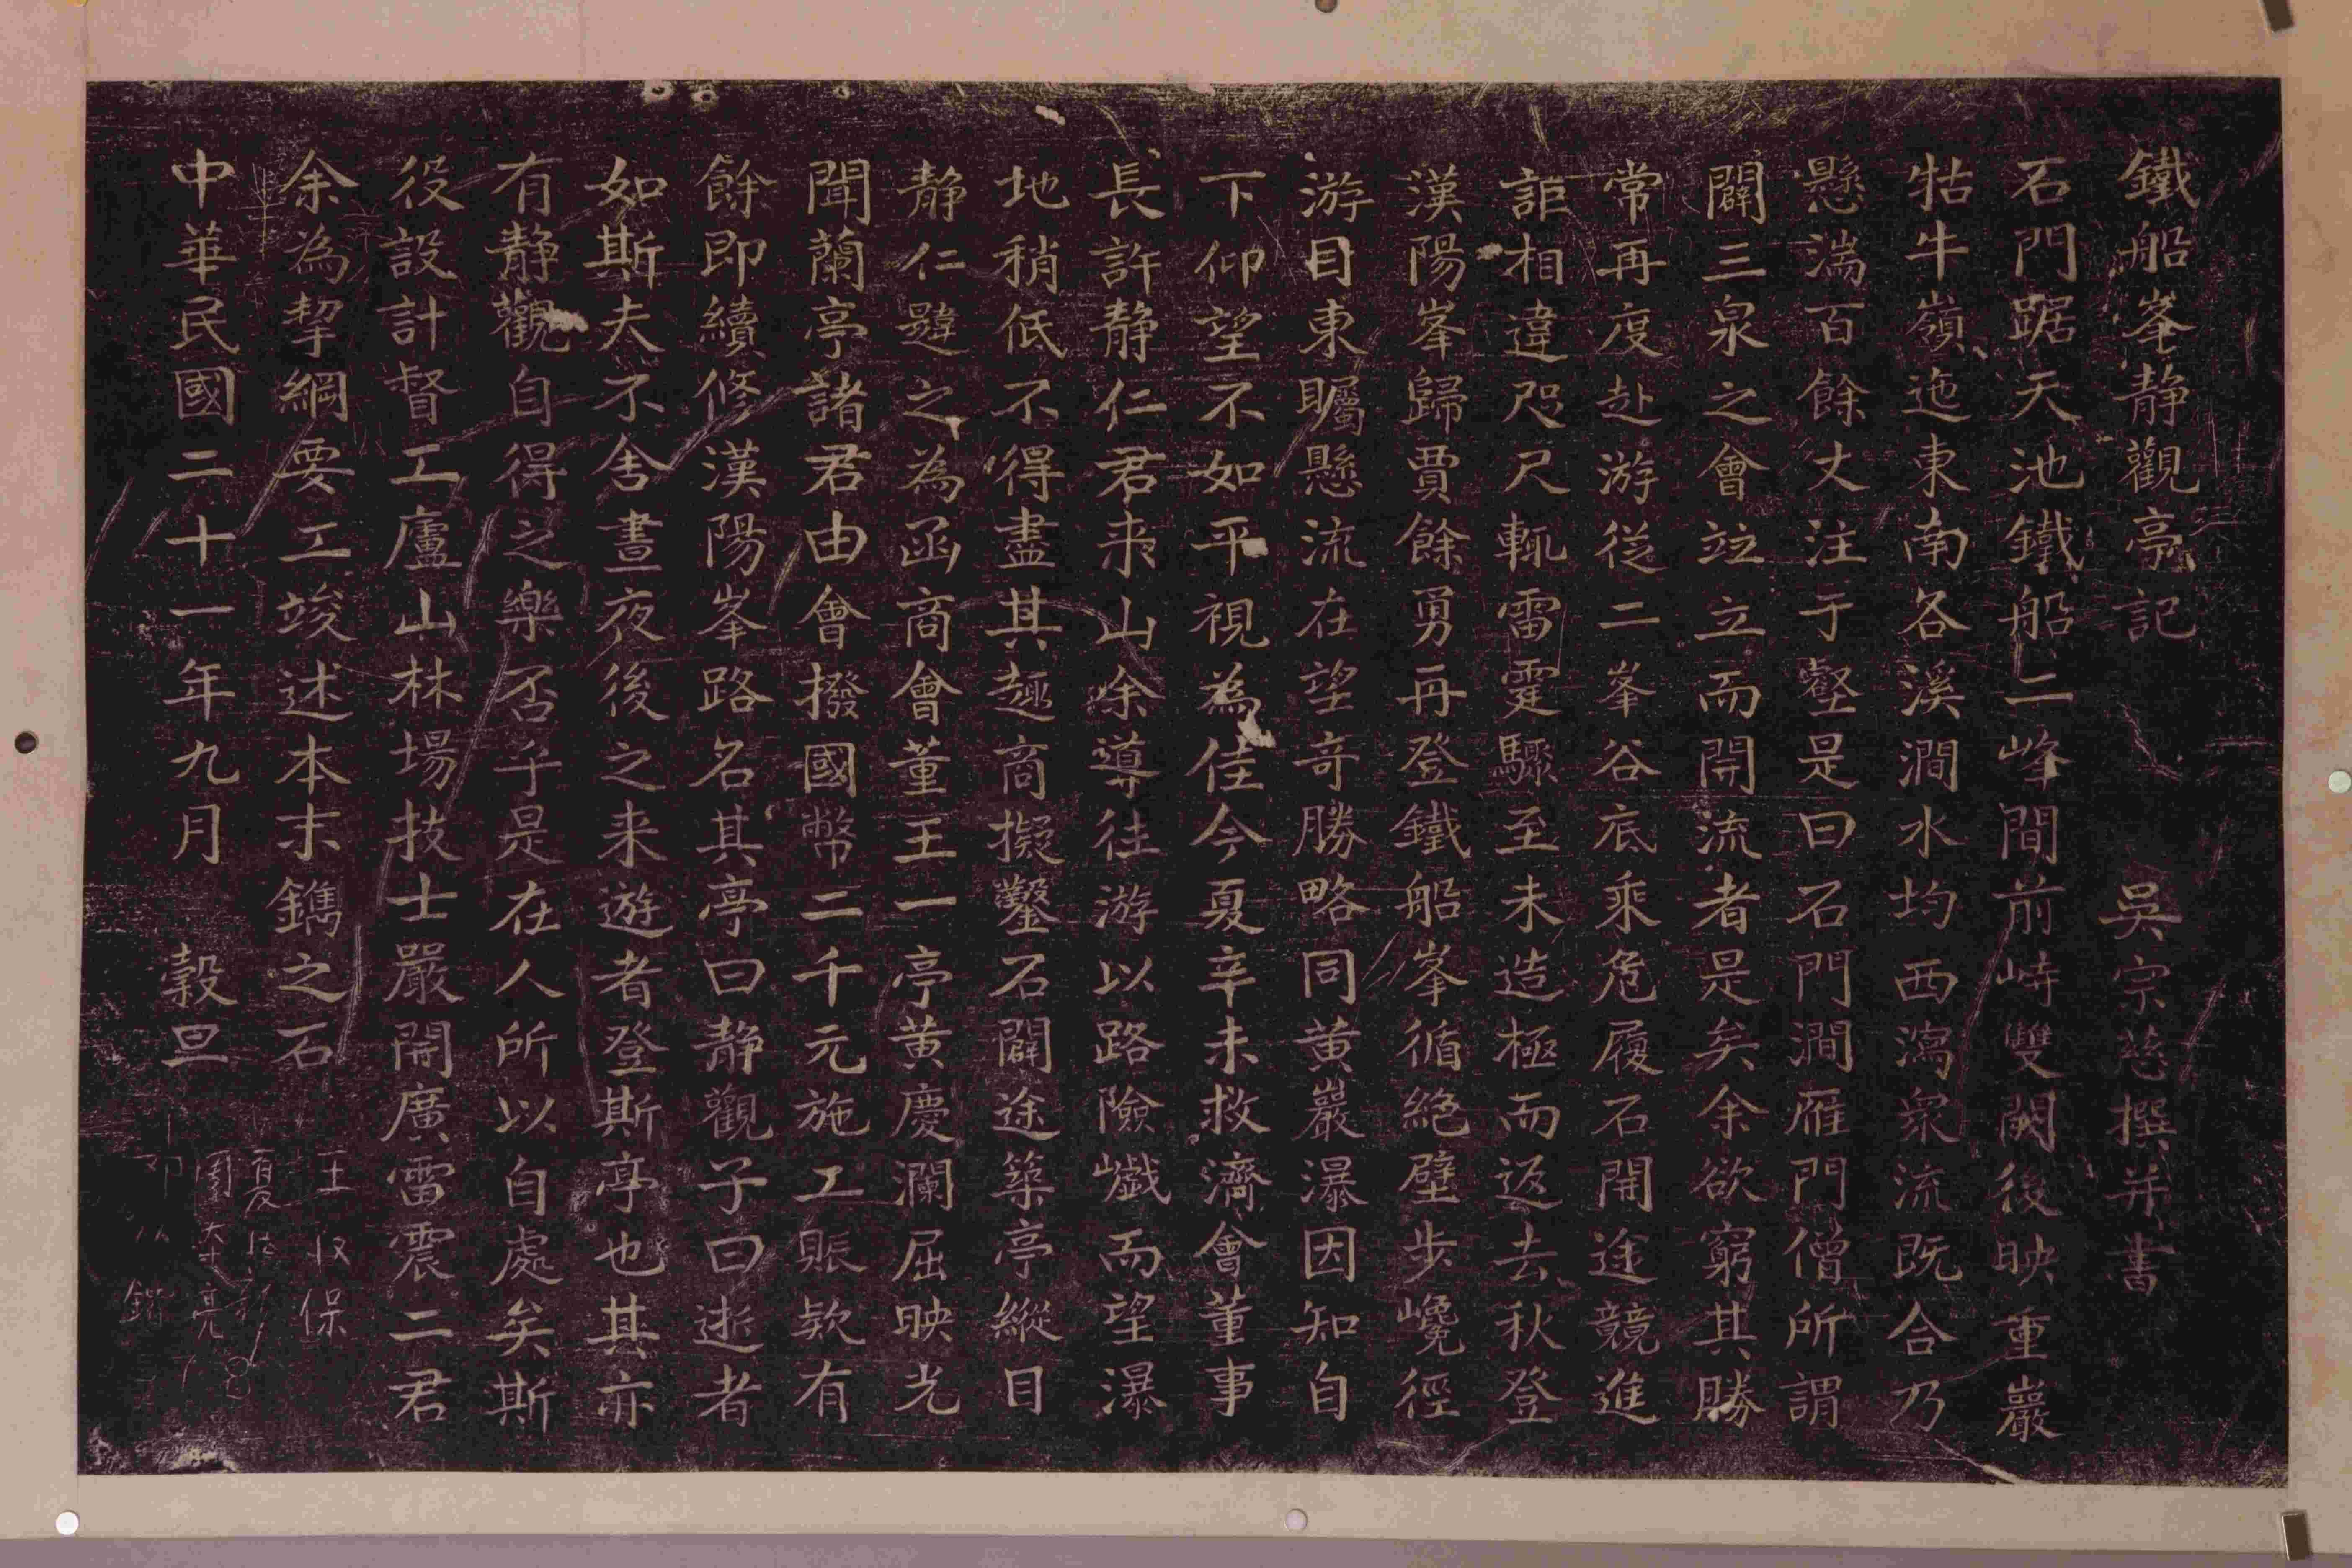 鐵船峯静觀亭記 吳宗慈撰并書
石門踞天池鐵船二峰間前峙雙闕後映重巖
牯牛嶺迤東南各溪澗水均西瀉衆流既合乃
懸湍百餘丈注于壑是曰石門澗雁門僧所謂
闢三泉之會竝立而開流者是矣余欲窮其勝
常再度赴游從二峯谷底乘危履石開途競進
詎相違咫尺輒雷霆驟至未造極而返去秋登
漢陽峯歸賈餘勇再登鐵船峯循絶壁步巉徑
游目東矚懸流在望奇勝略同黄巖瀑因知自
下仰望不如平視為佳今夏辛未救濟會董事
長許静仁君来山余導往游以路險巇而望瀑
地稍低不得盡其趣商擬鑿石闢途築亭縱目
静仁韙之為函商會董王一亭黄慶瀾屈映光
聞蘭亭諸君由會撥國幣二千元施工賑欵有
餘即續修漢陽峯路名其亭曰静觀子曰逝者
如斯夫不舍晝夜後之来遊者登斯亭也其亦
有静觀自得之樂否乎是在人所以自處矣斯
役設計督工廬山林場技士嚴開廣雷震二君
余為挈綱要工竣述本末鐫之石
中華民國二十一年九月 穀旦